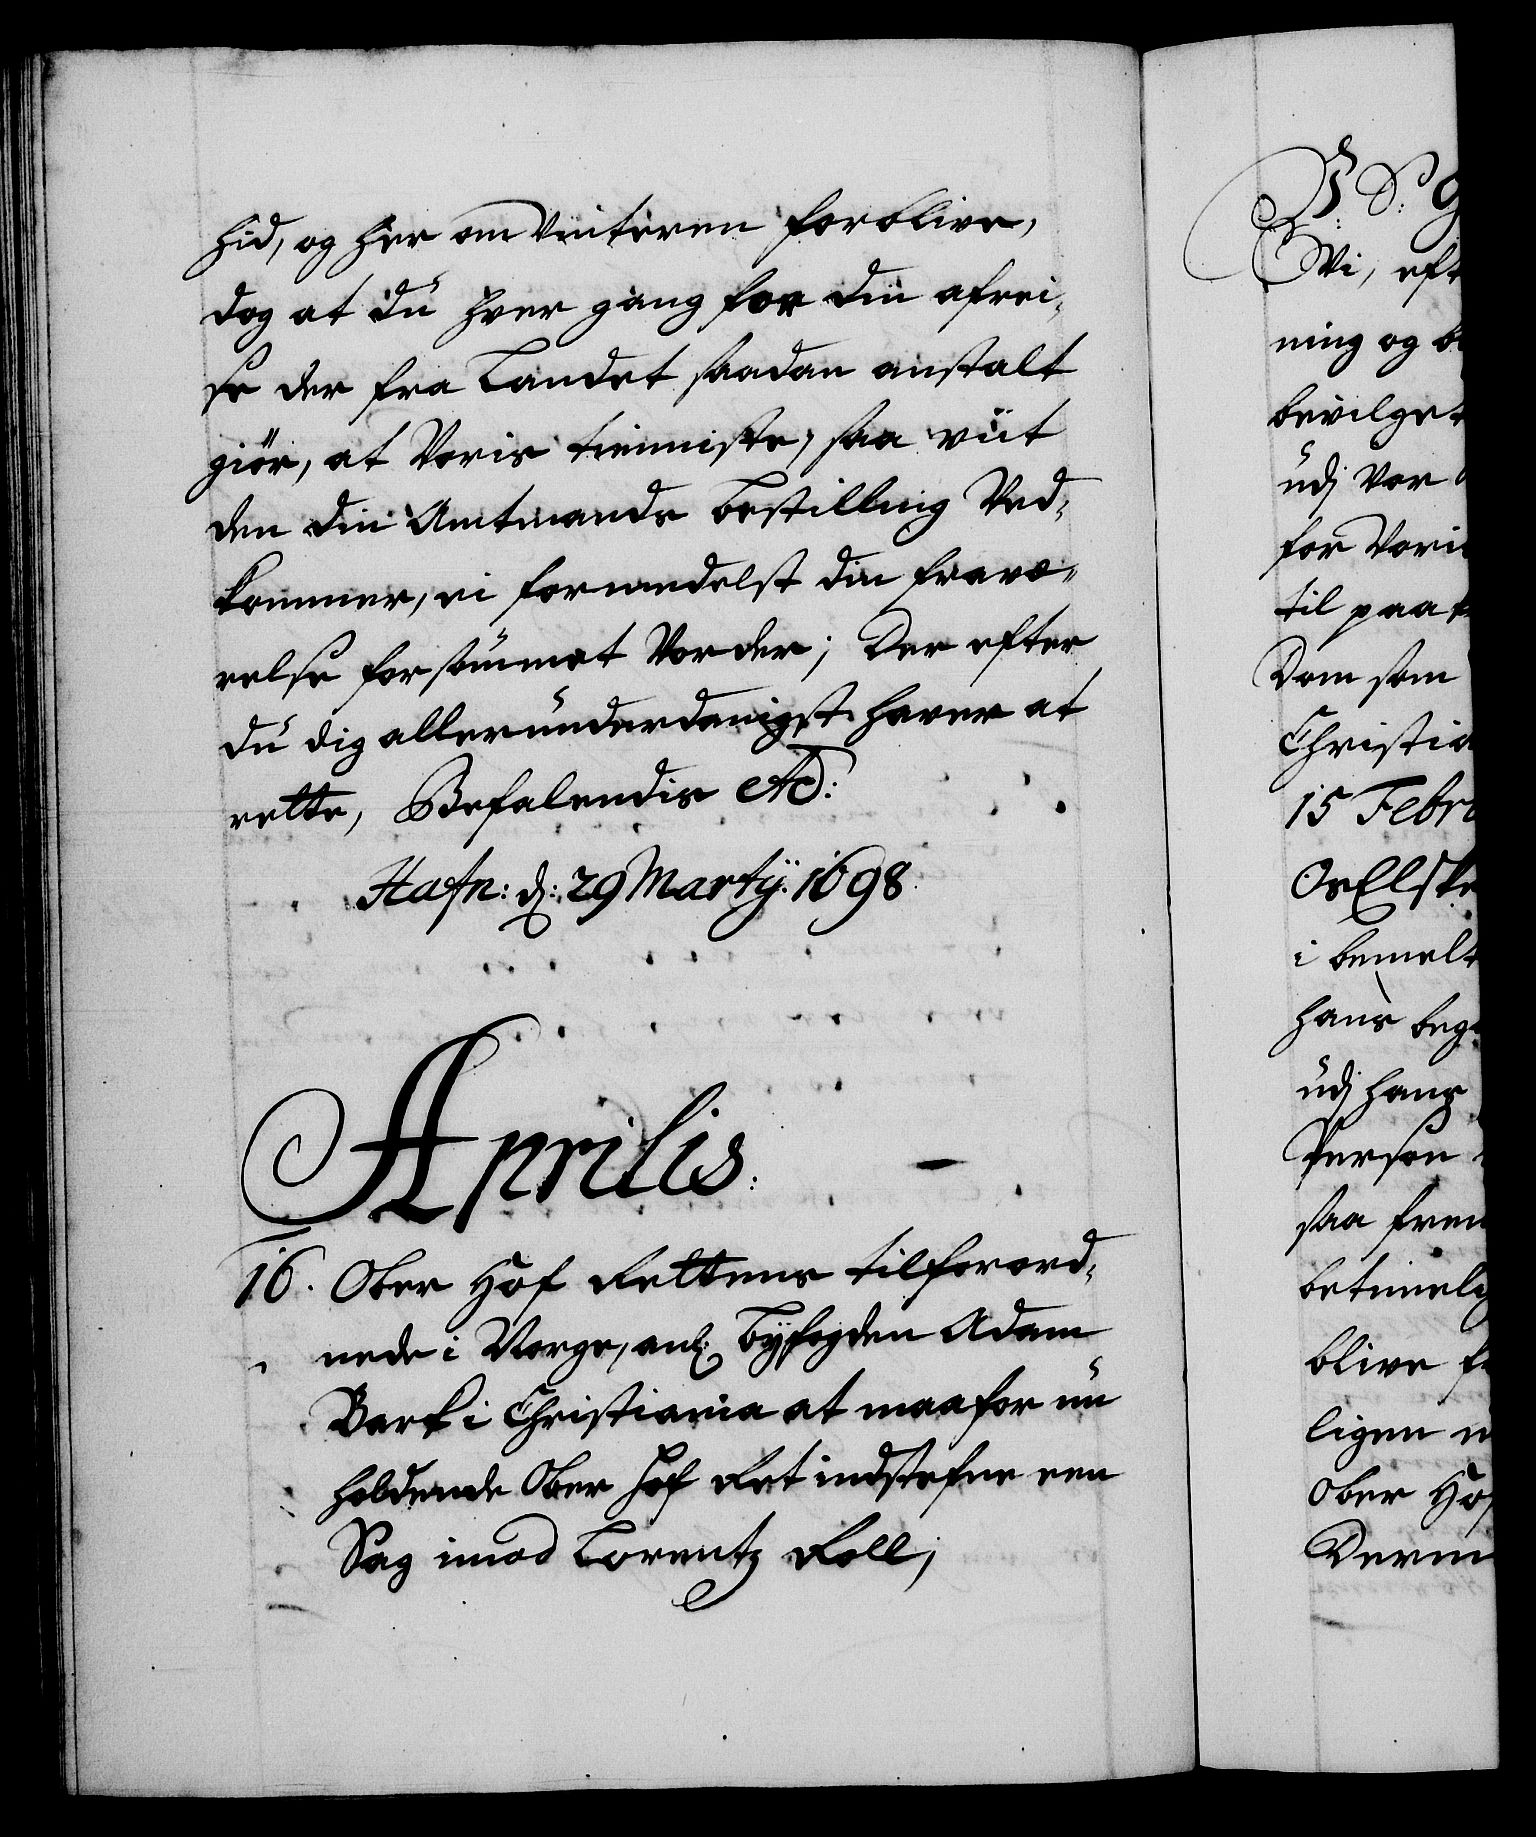 hid, og her om Vinteren forblive,
dog at du hver gang for din afrei,
se der fra Landet saadan anstalt
giör, at Voris tienniste, saa viit
den din Amtmands bestilling Ved,
kommer, ei formedelst din fravæ,
relse forsömmet Vorder; Der efter
du dig allerunderdanigst haver at
rette, Befalendis etc:
Hafn: d: 29 Martij. 1698.
Aprilis.
16. Ober Hof Rettens tilforord,
nede i Norge, anl: Byfogden Adam
Bark i Christiania at maa for nu
holdende Ober Hof Ret indstefne een
Sag imod Lorentz Roll;
Wi, eft
ning og be
bevilget
udj Vor
for Vori
til paa
Dom som
Christia
15 Febru
OsElske
i bemelt
hans beg
udj hans
Person
saa frem
betimelig
blive f
ligen
Ober Hof
Derm